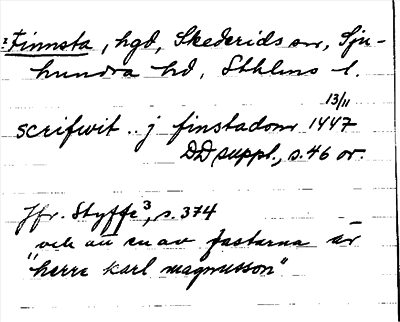 Finnsta, hgd, Skederids sn, Sju-
hundra hd, Sthlms l.
13/11
scrifwit .. j finstadom 1447
DD suppl., s. 46 or.
Jfr. Styffe³, s. 374
och en av fastarna är
"herre karl magnusson"